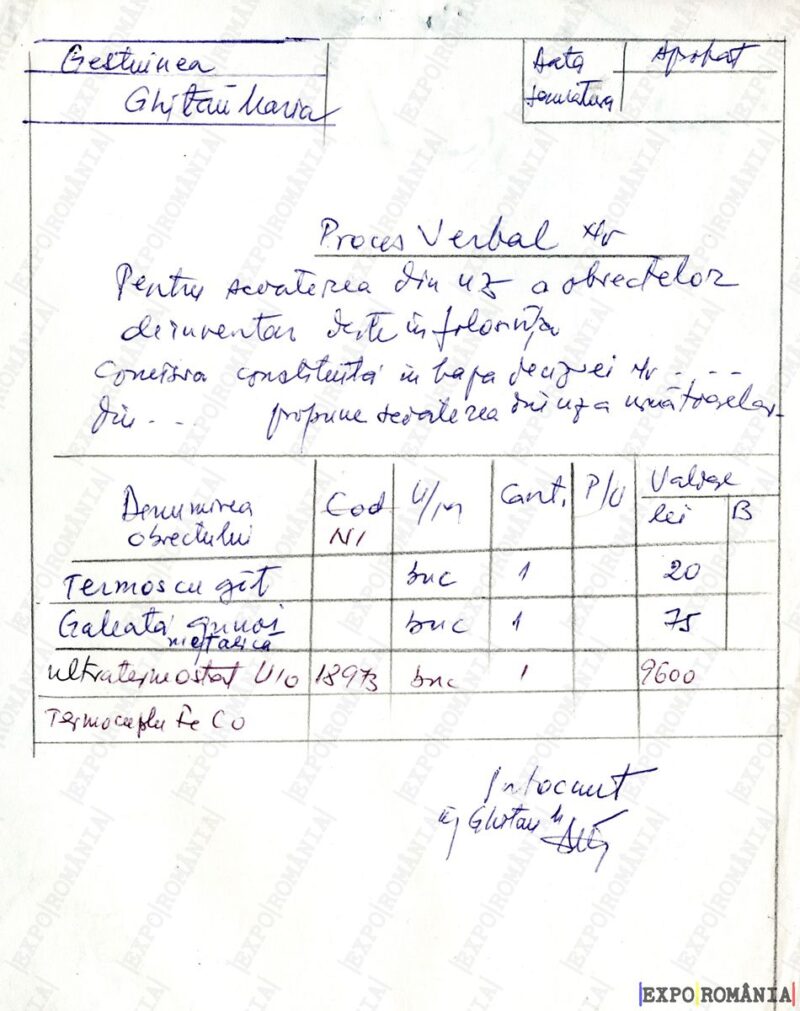 Gestiunea
Ghițău Maria
Data Aprobat
semnătura
Proces Verbal Nr
Pentru scoaterea din uz a obiectelor
de inventar date în folosință
Comisia constituită în baza deciziei Nr ....
din .... propune scoaterea din uz a următoarelor
Denumirea obiectului Cod NI U/M Cant. P/U Valoare lei B
Termos cu gît buc 1 20
Galeată gunoi metalică buc 1 75
ultratermostat U10 18973 buc 1 9600
Termocuplu Fe Co
Intocmit
Ghițau M
EXPO ROMÂNIA